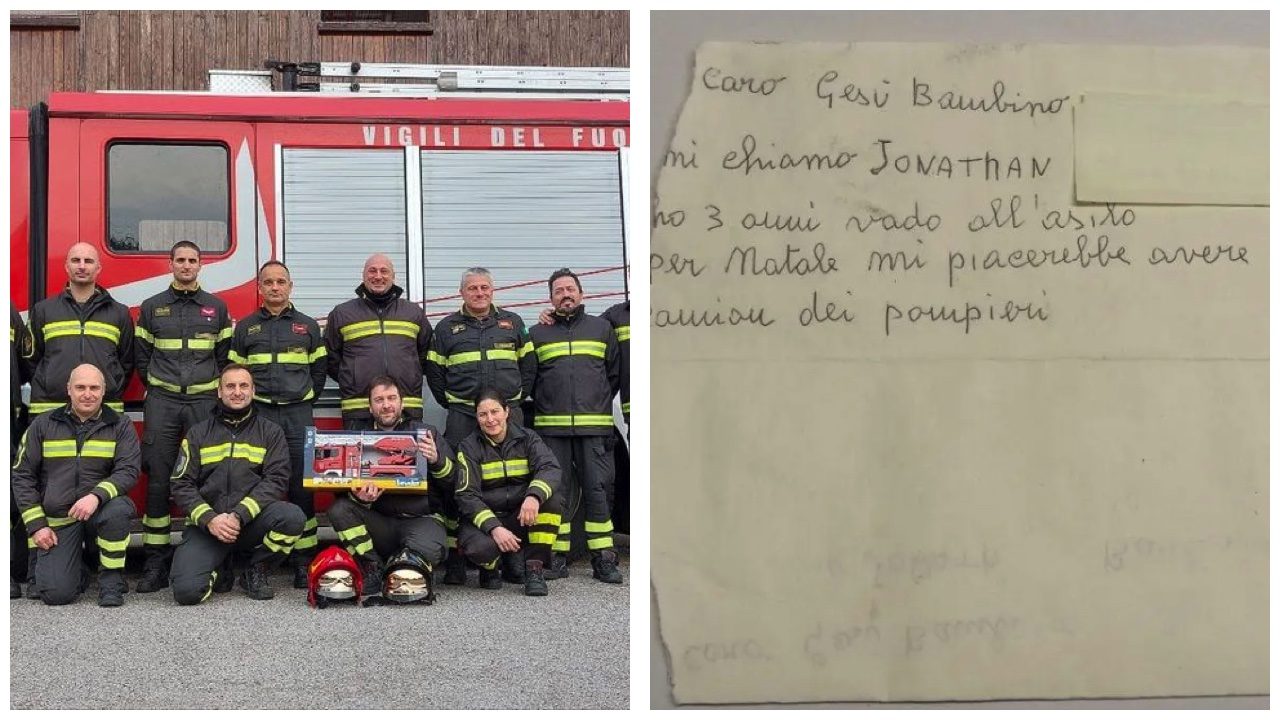 VIGILI DEL FUO
caro Gesù Bambino
mi chiamo JONATHAN
ho 3 anni vado all'asilo
per Natale mi piacerebbe avere
camion dei pompieri
caro Gesù Bambi